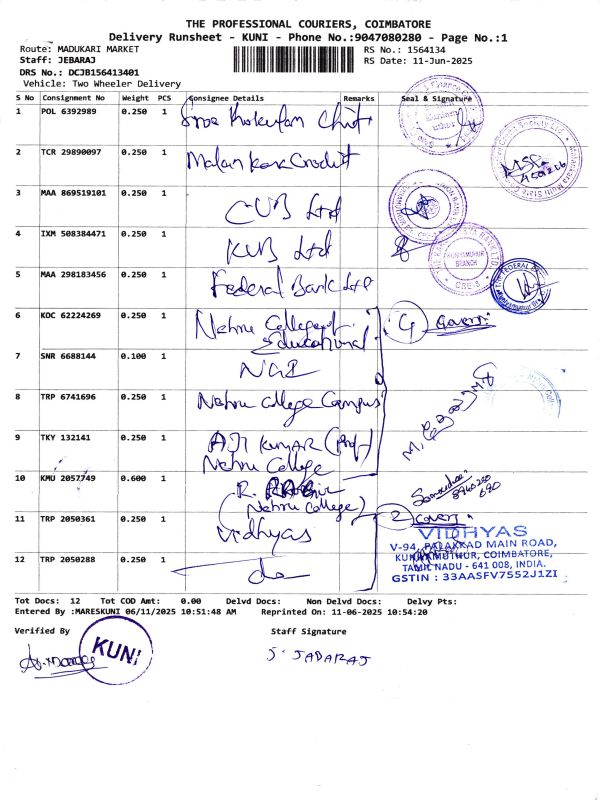 THE PROFESSIONAL COURIERS, COIMBATORE
Delivery Runsheet - KUNI - Phone No.:9047080280 - Page No.:1
Route: MADUKARI MARKET
RS No.: 1564134
Staff: JEBARAJ
RS Date: 11-Jun-2025
DRS No.: DCJB156413401
Vehicle: Two Wheeler Delivery
S No Consignment No Weight PCS Consignee Details Remarks Seal & Signature
1 POL 6392989 0.250 1
2 TCR 29890097 0.250 1
3 MAA 869519101 0.250 1 CUB Ltd
4 IXM 508384471 0.250 1 KUB Ltd
5 MAA 298183456 0.250 1 Federal Bank Ltd
6 KOC 62224269 0.250 1 Nehru College of
Educational
7 SNR 6688144 0.100 1 NGI
8 TRP 6741696 0.250 1 Nehru College Campus
9 TKY 132141 0.250 1 AJI KUMAR (Prof)
Nehru College
10 KMU 2057749 0.600 1 R.
(Nehru College)
11 TRP 2050361 0.250 1 Vidhyas
2 Covers
12 TRP 2050288 0.250 1 do
KUNIAMUTHUR
BRANCH
VIDHYAS
V-94, PALAKKAD MAIN ROAD,
KUNIAMUTHUR, COIMBATORE,
TAMIL NADU - 641 008, INDIA.
GSTIN : 33AASFV7552J1ZI
Tot Docs: 12 Tot COD Amt: 0.00 Delvd Docs: Non Delvd Docs: Delvy Pts:
Entered By :MARESKUNI 06/11/2025 10:51:48 AM Reprinted On: 11-06-2025 10:54:20
Verified By
Staff Signature
KUNI
J. JABARAJ